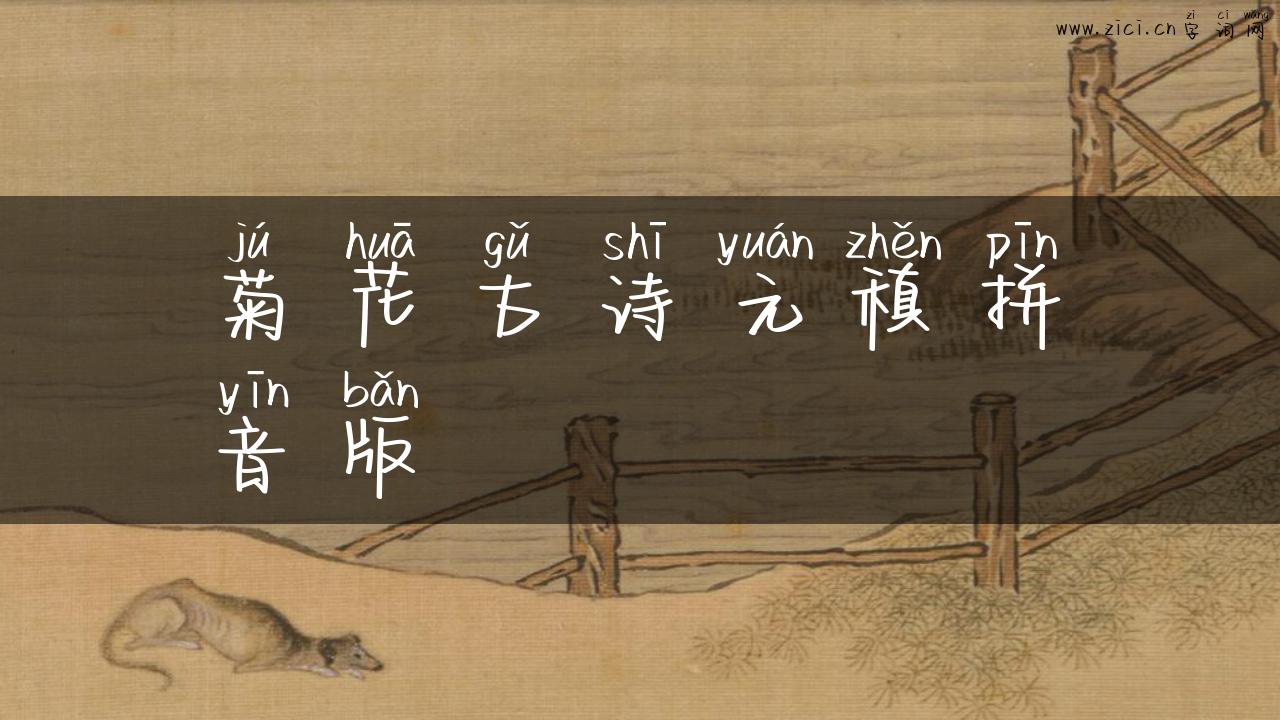 zì cí wǎng
www.zici.cn 字 词 网
jú huā gǔ shī yuán zhěn pīn
菊 花 古 诗 元 稹 拼
yīn bǎn
音 版